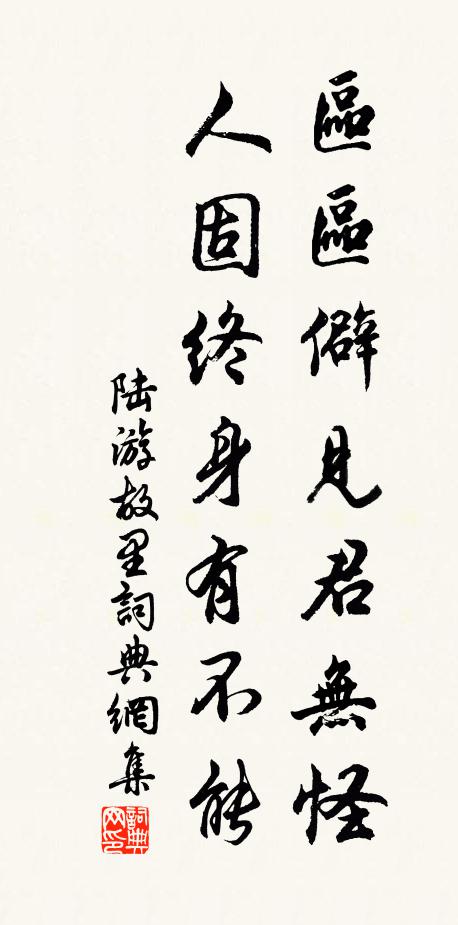 區區僻見君無怪
人固終身有不能
陆游故里詞典網集
詞典
网印